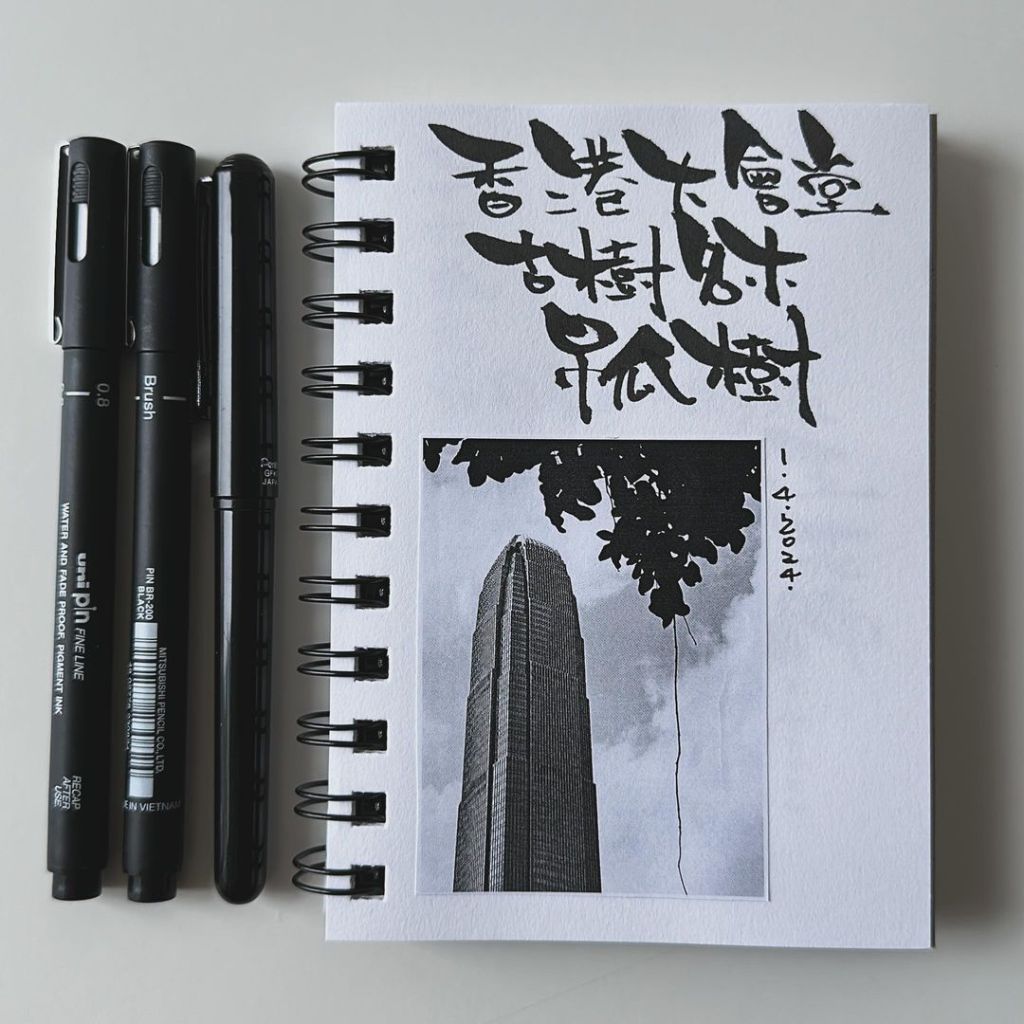 香港大會堂
古樹名木
吊瓜樹
1.4.2024.
0.8
uni pin FINE LINE
WATER AND FADE PROOF, PIGMENT INK
RECAP
AFTER
USE
Brush
PIN BR-200
BLACK
MITSUBISHI PENCIL CO., LTD.
IN VIETNAM